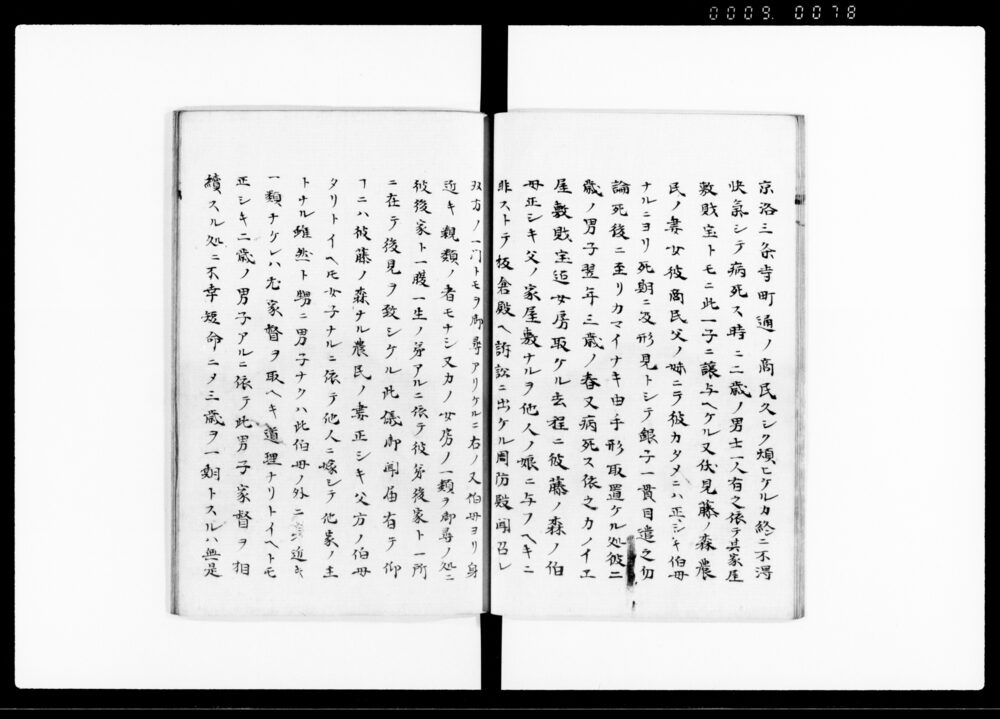 0009. 0078
京洛三条寺町通ノ商民久シク煩ヒケルカ終ニ不得
快氣シテ病死ス時ニ二歳ノ男士一人有之依テ其家屋
敷財宝トモニ此一子ニ譲与ヘケル又伏見藤ノ森農
民ノ妻女彼商民父ノ妹ニテ彼カタメニハ正シキ伯母
ナルニヨリ死期ニ及形見トシテ銀子一貫目遣之勿
論死後ニ至リカマイナキ由手形取置ケル処彼二
歳ノ男子翌年三歳ノ春又病死ス依之カノイエ
屋敷財宝迠女房取ケル去程ニ彼藤ノ森ノ伯
母正シキ父ノ家屋敷ナルヲ他人ノ娘ニ与フヘキニ
非ストテ板倉殿ヘ訴訟ニ出ケル周防殿聞召レ
双方ノ一門トモヲ御尋アリケルニ右ノ又伯母ヨリ身
近キ親類ノ者モナシ又カノ女房ノ一類ヲ御尋ノ処ニ
彼後家ト一腹一生ノ弟アルニ依テ彼弟後家ト一所
ニ在テ後見ヲ致シケル此儀御聞届有テ仰
ヿニハ彼藤ノ森ナル農民ノ妻正シキ父方ノ伯母
タリトイヘモ女子ナルニ依テ他人ニ嫁シテ他家ノ主
トナル雖然ト甥ニ男子ナクハ此伯母ノ外ニ近キ
一類ナケレハ尤家督ヲ取ヘキ道理ナリトイヘトモ
正シキ二歳ノ男子アルニ依テ此男子家督ヲ相
續スル処ニ不幸短命ニメ三歳ヲ一期トスルハ無是